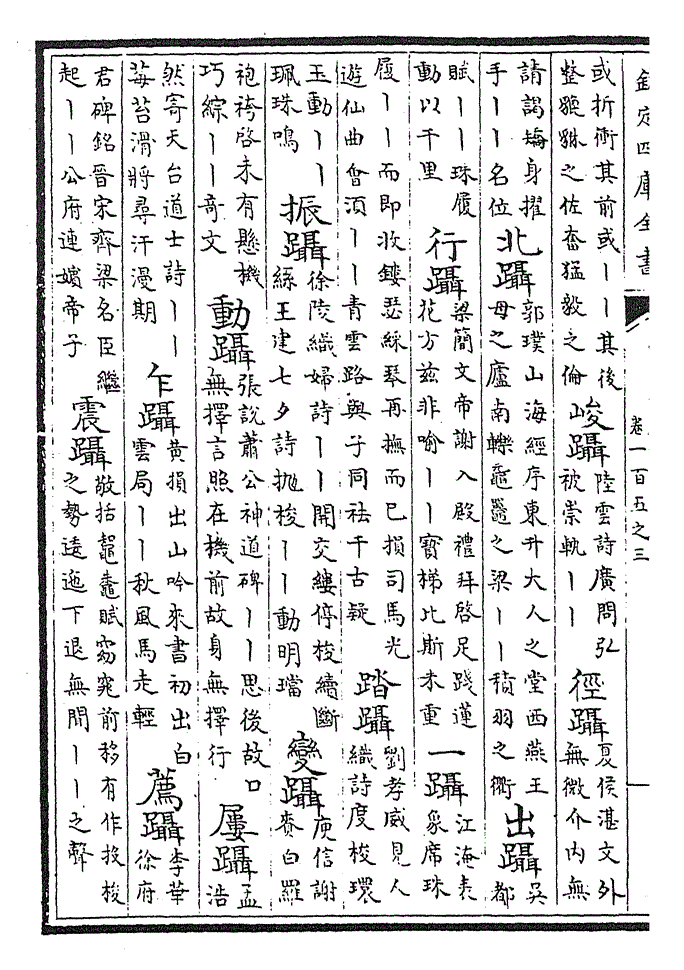 欽定四庫全書
卷一百五之三
或折衝其前或丨丨其後
整貔貅之佐奮猛毅之倫
峻躡
陸雲詩廣問弘
被崇軌丨丨
徑躡
夏侯湛文外
無微介内無
請謁矯身擢
手丨丨名位
北躡
郭璞山海經序東升大人之堂西燕王
母之廬南轢黿鼉之梁丨丨積羽之衢
出躡
吳
都
賦丨丨珠履
動以千里
行躡
梁簡文帝謝入殿禮拜啓足踐蓮
花方兹非喻丨丨寶梯比斯未重
一躡
江淹表
象席珠
履丨丨而即收鏤瑟綵琴再撫而已損司馬光
遊仙曲會須丨丨青雲路與子同祛千古疑
踏躡
劉孝威見人
織詩度梭環
玉動丨丨
珮珠鳴
振躡
徐陵織婦詩丨丨開交縷停梭續斷
絲王建七夕詩抛梭丨丨動明璫
變躡
庾信謝
賚白羅
袍袴啓未有懸機
巧綜丨丨奇文
動躡
張說蕭公神道碑丨丨思後故口
無擇言照在機前故身無擇行
屢躡
孟
浩
然寄天台道士詩丨丨
莓苔滑將尋汗漫期
乍躡
黃損出山吟來書初出白
雲局丨丨秋風馬走輕
薦躡
李華
徐府
君碑銘晉宋齊梁名臣繼
起丨丨公府連嬪帝子
震躡
敬括鼅鼄賦窈窕前移有作投梭
之勢逶迤下退無聞丨丨之聲